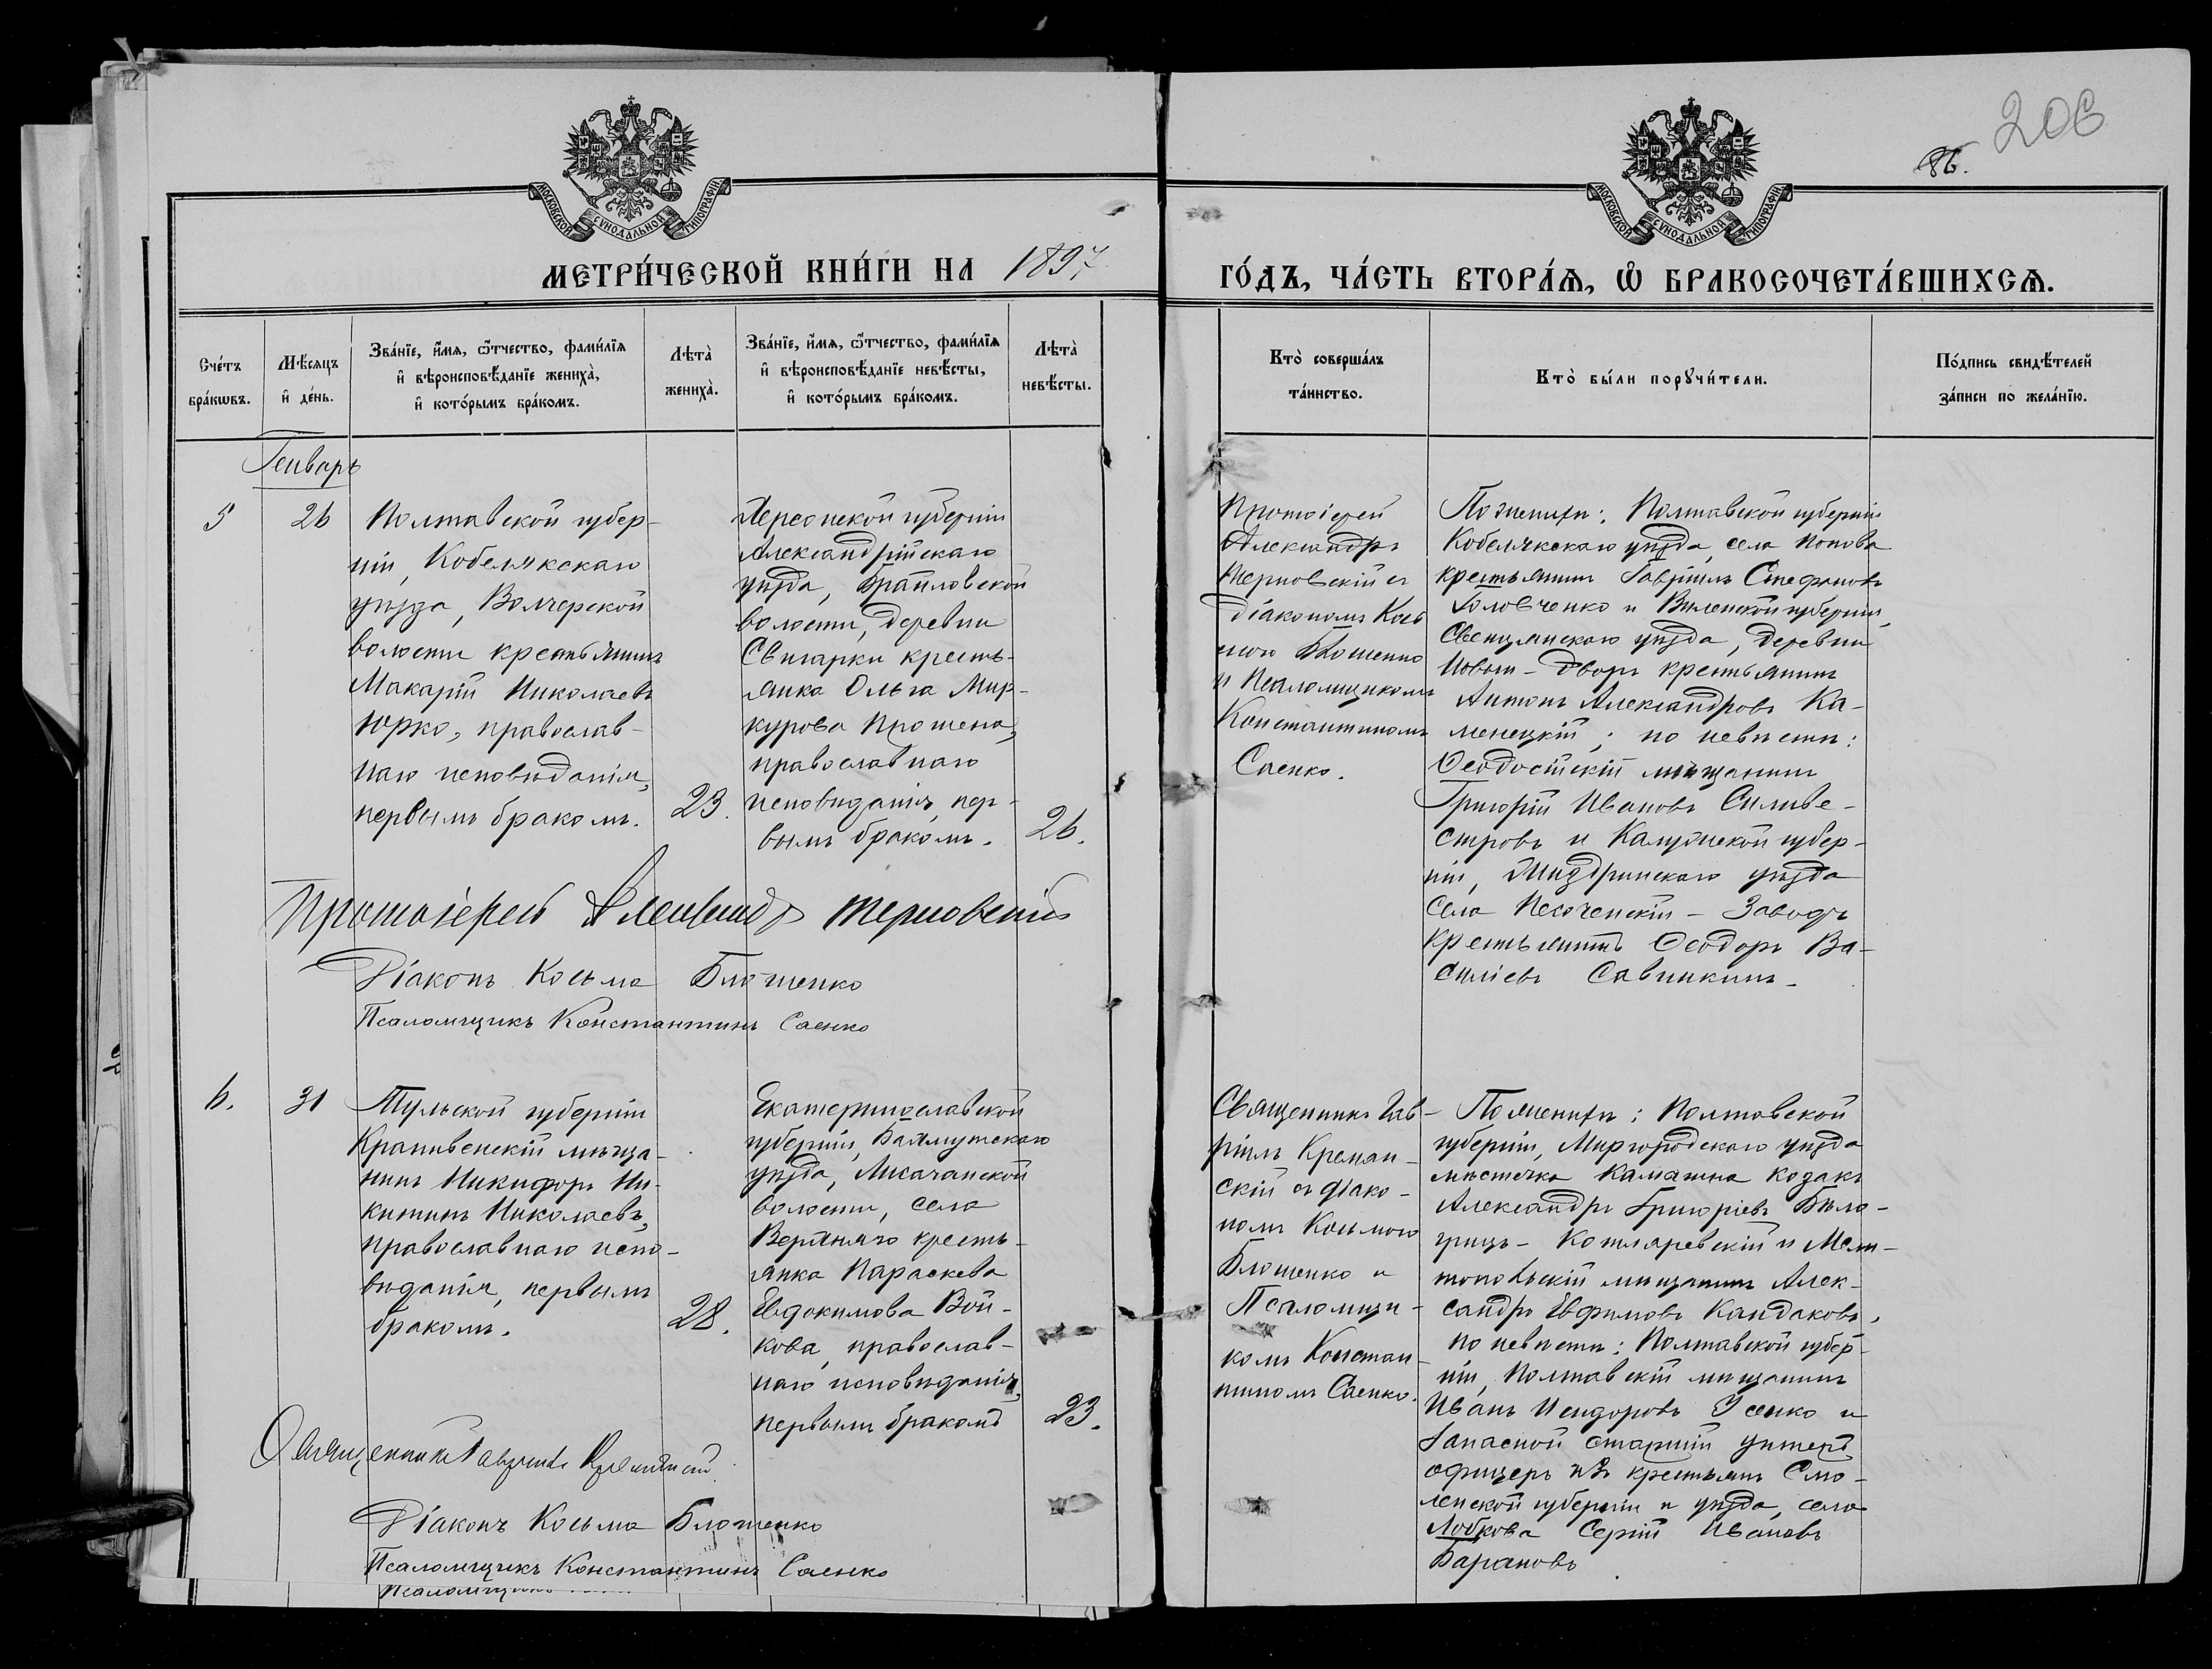 206
86.
МОСКОВСКОЙ СѴНОДАЛЬНОЙ ТИПОГРАФІИ
МОСКОВСКОЙ СѴНОДАЛЬНОЙ ТИПОГРАФІИ
МЕТРИ́ЧЕСКОЙ КНИ́ГИ НА 1897
ГО́ДЪ, ЧА́СТЬ ВТОРА́Ѧ, Ѽ БРАКОСОЧЕТА́ВШИХСѦ.
Сче́тъ
бра́кѡвъ.
Мѣ́сяцъ
и҆ де́нь.
Зва́нїе, и҆́мѧ, ѻ҆́тчество, фами́лїѧ
и҆ вѣроисповѣ́данїе жениха̀,
и҆ кото́рымъ бра́комъ.
Лѣта̀
жениха̀.
Зва́нїе, и҆́мѧ, ѻ҆́тчество, фами́лїѧ
и҆ вѣроисповѣ́данїе невѣ́сты,
и҆ кото́рымъ бра́комъ.
Лѣта̀
невѣ́сты.
Кто̀ соверша́лъ
та́инство.
Кто̀ бы́ли порꙋчи́тели.
По́дпись свидѣ́телей
за́писи по жела́нїю.
Генварь
5
26
Полтавской губер-
ніи, Кобелякскаго
уѣзда, Волчерской
волости крестьянинъ
Макарій Николаевъ
Юрко, православ-
наго исповѣданія,
первымъ бракомъ.
23.
Херсонской губерніи
Александрійскаго
уѣзда, Браиловской
волости, деревни
Свинарки кресть-
янка Ольга Мир-
курова Прошена,
православнаго
исповѣданія, пер-
вымъ бракомъ.
26.
Протоіерей
Александръ
Терновскій съ
діакономъ Кось
мою Блошенко
и Псаломщикомъ
Константиномъ
Саенко.
По женихѣ: Полтавской губерніи
Кобелякскаго уѣзда, села Попова
крестьянинъ Гавріилъ Стефановъ
Головченко и Виленской губерніи,
Свенцянскаго уѣзда, деревни
Новый-Дворъ крестьянинъ
Антонъ Александровъ Ка-
менецкій; по невѣстѣ:
Ѳеодосійскій мѣщанинъ
Григорій Ивановъ Сильве-
стровъ и Калужской губер-
ніи, Жиздринскаго уѣзда
села Песоченскій-Заводъ
крестьянинъ Ѳеодоръ Ва-
силіевъ Савинкинъ.
Протоіерей Александръ Терновскій
Діаконъ Косьма Блошенко
Псаломщикъ Константинъ Саенко
6.
31
Тульской губерніи
Крапивенскій мѣща-
нинъ Никифоръ Ни-
китинъ Николаевъ,
православнаго испо-
вѣданія, первымъ
бракомъ.
28.
Екатеринославской
губерніи, Бахмутскаго
уѣзда, Лисичанской
волости, села
Верхняго кресть-
янка Параскева
Евдокимова Вой-
кова, православ-
наго исповѣданія,
первымъ бракомъ
23.
Священникъ Гав-
ріилъ Креман-
скій съ діако-
номъ Косьмою
Блошенко и
Псаломщи-
комъ Констан-
тиномъ Саенко.
По женихѣ: Полтавской
губерніи, Миргородскаго уѣзда
мѣстечка Камышна козакъ
Александръ Григоріевъ Бѣло-
грицъ-Котляревскій и Мели-
топольскій мѣщанинъ Алек-
сандръ Евфимовъ Кандаковъ,
по невѣстѣ: Полтавской губер-
ніи, Полтавскій мѣщанинъ
Иванъ Исидоровъ Усенко и
Запасной старшій унтеръ
офицеръ изъ крестьянъ Смо-
ленской губерніи и уѣзда, села
Лобкова Сергій Ивановъ
Барановъ
Священникъ Гавріилъ Креманскій
Діаконъ Косьма Блошенко
Псаломщикъ Константинъ Саенко
Псаломщикъ